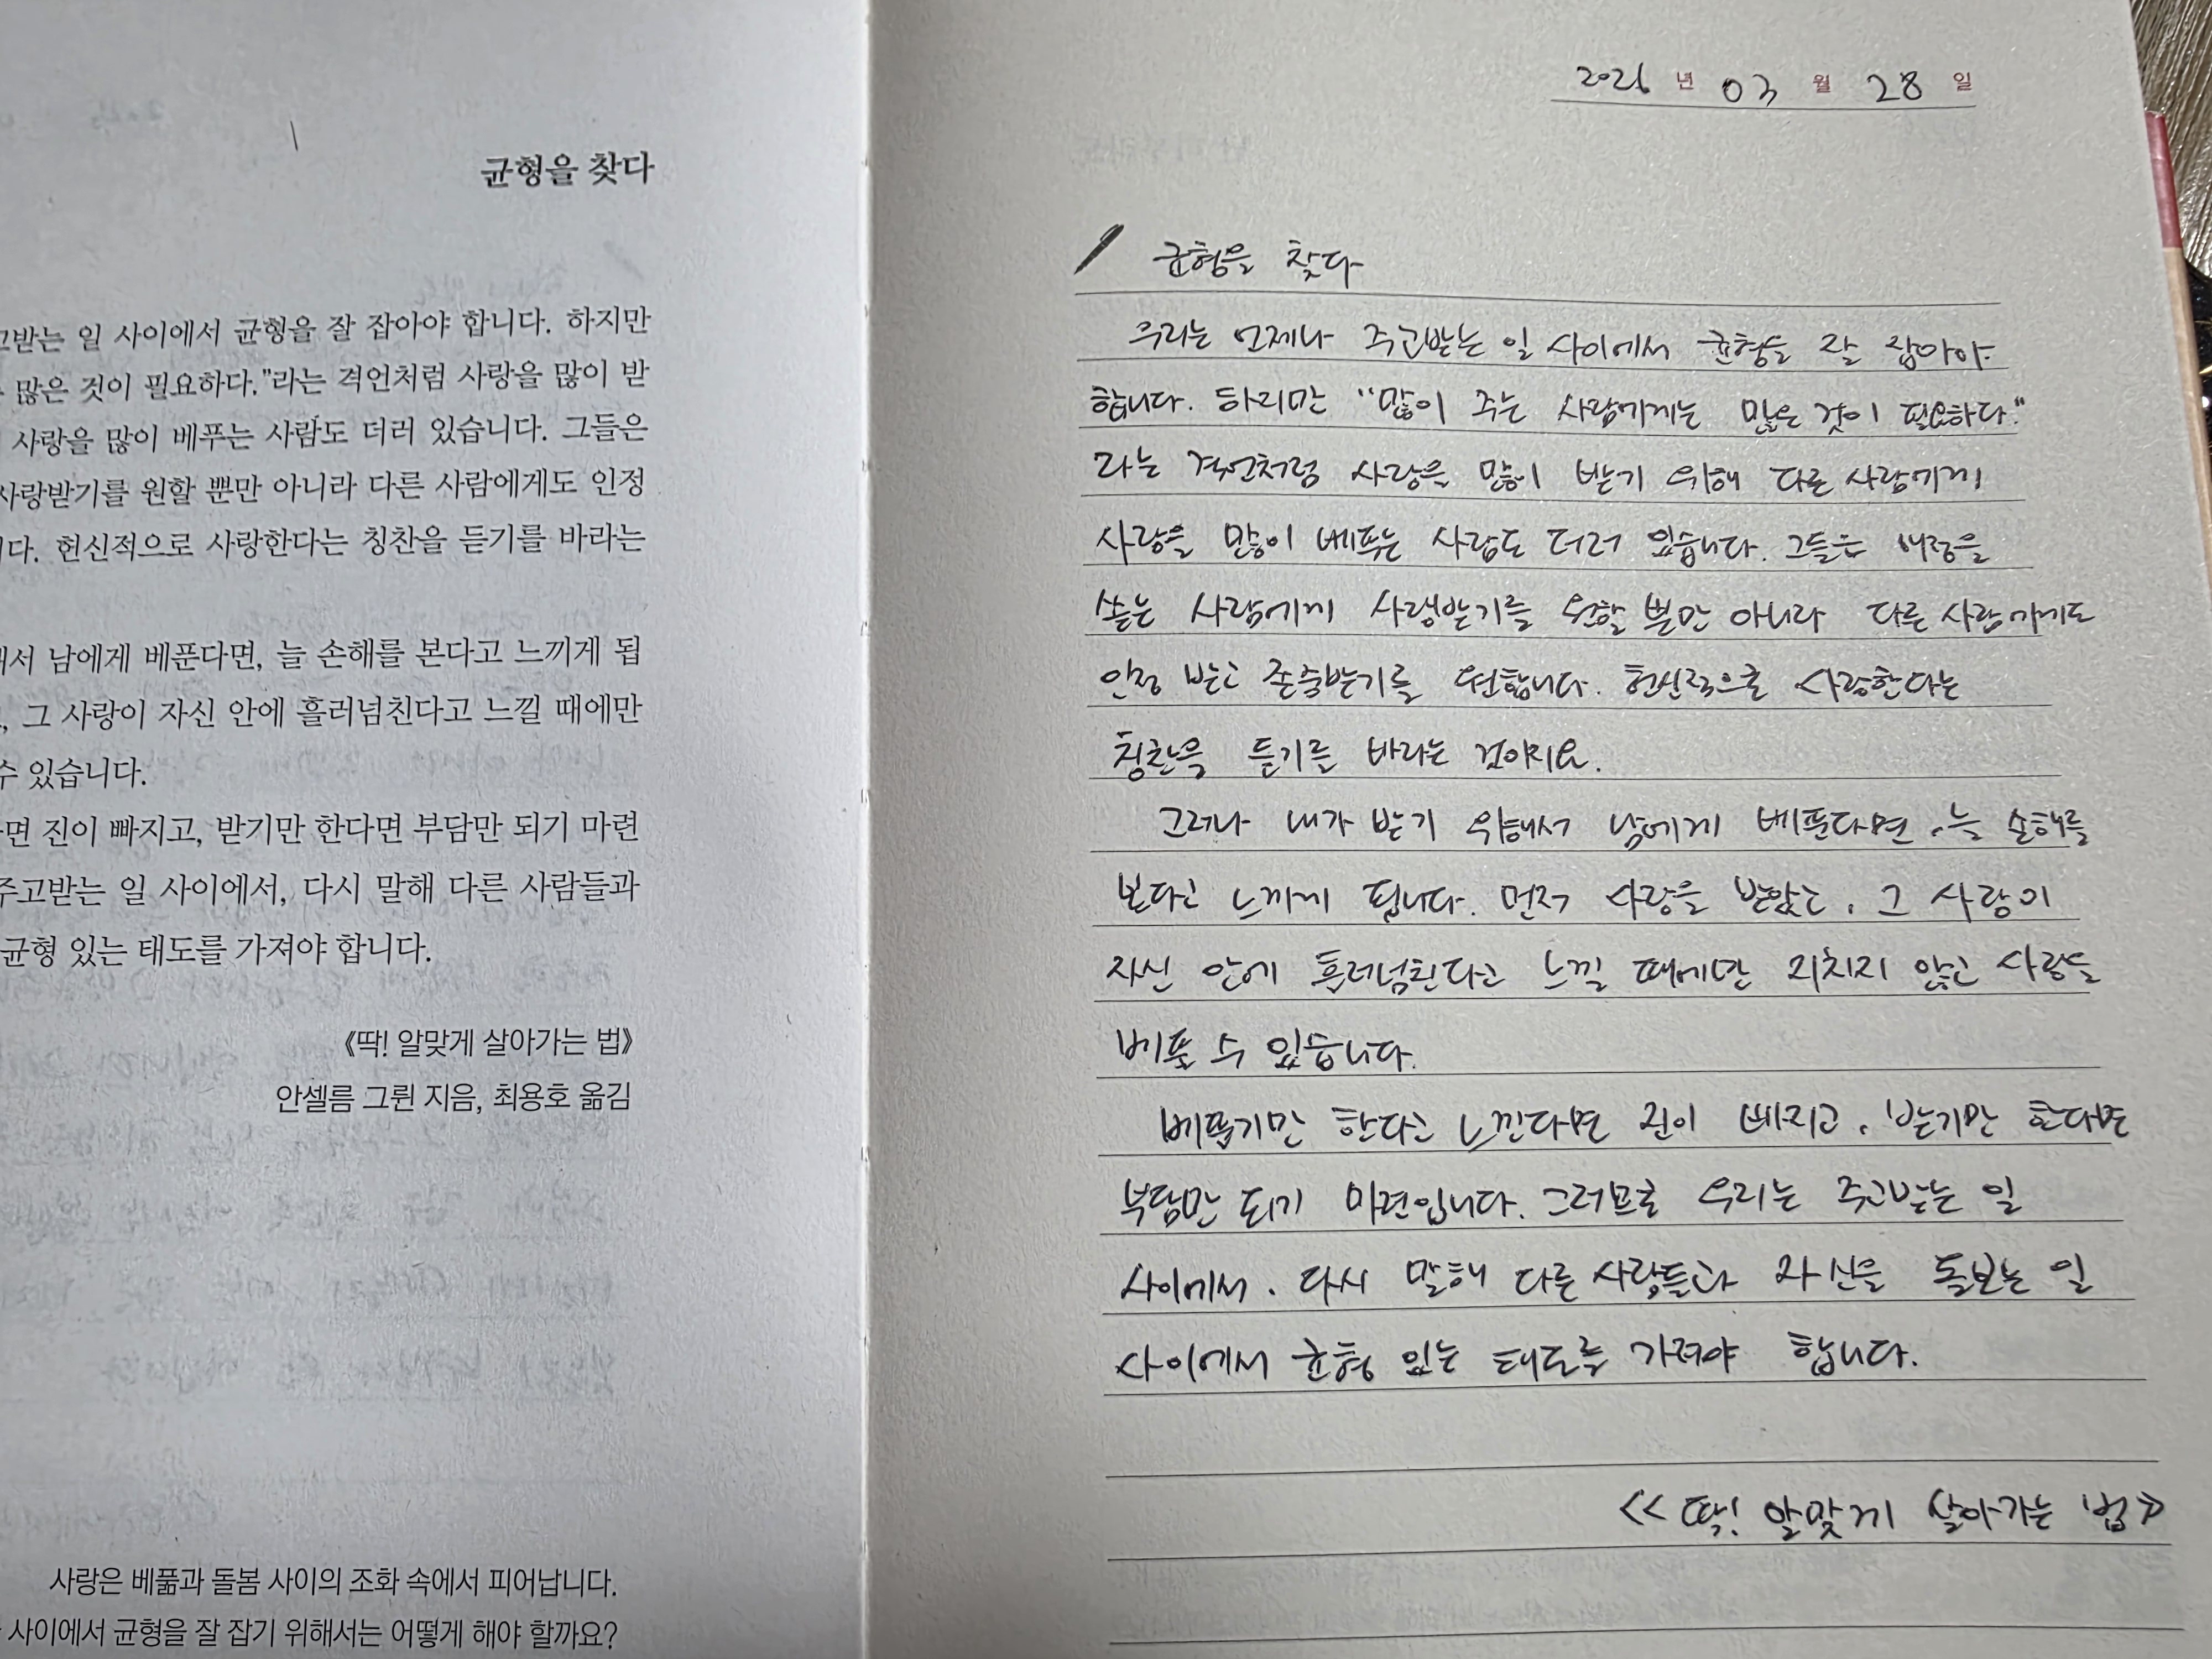 균형을 찾다
고받는 일 사이에서 균형을 잘 잡아야 합니다. 하지만
많은 것이 필요하다."라는 격언처럼 사랑을 많이 받
사랑을 많이 베푸는 사람도 더러 있습니다. 그들은
사랑받기를 원할 뿐만 아니라 다른 사람에게도 인정
다. 헌신적으로 사랑한다는 칭찬을 듣기를 바라는
해서 남에게 베푼다면, 늘 손해를 본다고 느끼게 됩
, 그 사랑이 자신 안에 흘러넘친다고 느낄 때에만
수 있습니다.
면 진이 빠지고, 받기만 한다면 부담만 되기 마련
주고받는 일 사이에서, 다시 말해 다른 사람들과
균형 있는 태도를 가져야 합니다.
《딱! 알맞게 살아가는 법》
안셀름 그륀 지음, 최용호 옮김
사랑은 베풂과 돌봄 사이의 조화 속에서 피어납니다.
사이에서 균형을 잘 잡기 위해서는 어떻게 해야 할까요?
2026 년 03 월 28 일
균형을 찾다
우리는 언제나 주고받는 일 사이에서 균형을 잘 잡아야
합니다. 하지만 "많이 주는 사람에게는 많은 것이 필요하다."
라는 격언처럼 사랑을 많이 받기 위해 다른 사람에게
사랑을 많이 베푸는 사람도 더러 있습니다. 그들은 애정을
쏟는 사람에게 사랑받기를 원할 뿐만 아니라 다른 사람에게도
인정 받고 존중받기를 원합니다. 헌신적으로 사랑한다는
칭찬을 듣기를 바라는 것이지요.
그러나 내가 받기 위해서 남에게 베푼다면, 늘 손해를
본다고 느끼게 됩니다. 먼저 사랑을 받았고, 그 사랑이
자신 안에 흘러넘친다고 느낄 때에만 지치지 않고 사랑을
베풀 수 있습니다.
베풀기만 한다고 느낀다면 진이 빠지고, 받기만 한다면
부담만 되기 마련입니다. 그러므로 우리는 주고받는 일
사이에서, 다시 말해 다른 사람들과 자신을 돌보는 일
사이에서 균형 있는 태도를 가져야 합니다.
<< 딱! 알맞게 살아가는 법 >>